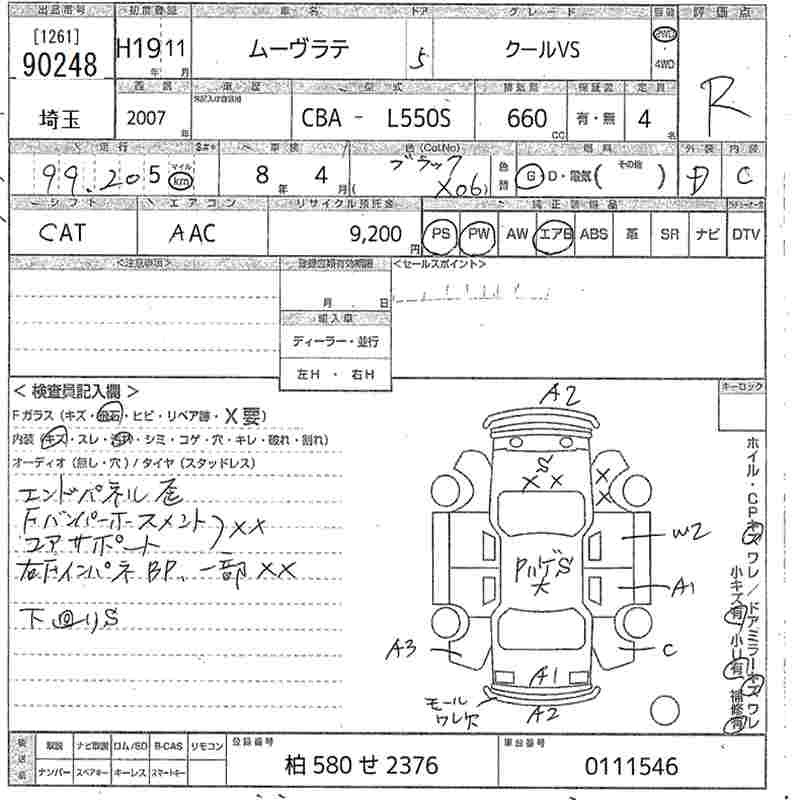 出品番号 初度登録 車名 ドア グレード 評価点
[1261]
90248 H19 11 ムーヴラテ 5 クールVS 2WD
年 月 ・4WD
R
埼玉 2007 CBA - L550S 660 有・無 4
年 CC 名
走行 車検 色(Col.No) 燃料 外装 内装
99,205 マイル km 8年 4月 ブラック (X06) 色替 G・D・電気( その他 ) D C
シフト エアコン リサイクル預託金 純正装備品
CAT AAC 9,200円 PS PW AW エアB ABS 革 SR ナビ DTV
<注意事項> 登録書類有効期限 <セールスポイント>
月 日
輸入車
ディーラー・並行
左H ・ 右H
キーロック
< 検査員記入欄 >
Fガラス(キズ・飛石・ヒビ・リペア跡・X要)
内装(キズ・スレ・汚れ・シミ・コゲ・穴・キレ・破れ・割れ)
オーディオ(無し・穴)/タイヤ(スタッドレス)
エンドパネル
Fバンパーホースメント
コアサポート ) XX
右Fインパネ BP、一部 XX
下回りS
A2
S
X X
X
X
W2
PルーゲS
大
A1
A3
C
A1
モール
ワレ欠
A2
ホイル・CPキズ ワレ/ドアミラーキズ ワレ
小キズ有 小U有 補修有
後送品 取説 ナビ取説 ロム/SD B-CAS リモコン 登録番号 車台番号
ナンバー スペアキー キーレス スマートキー
柏 580 せ 2376 0111546